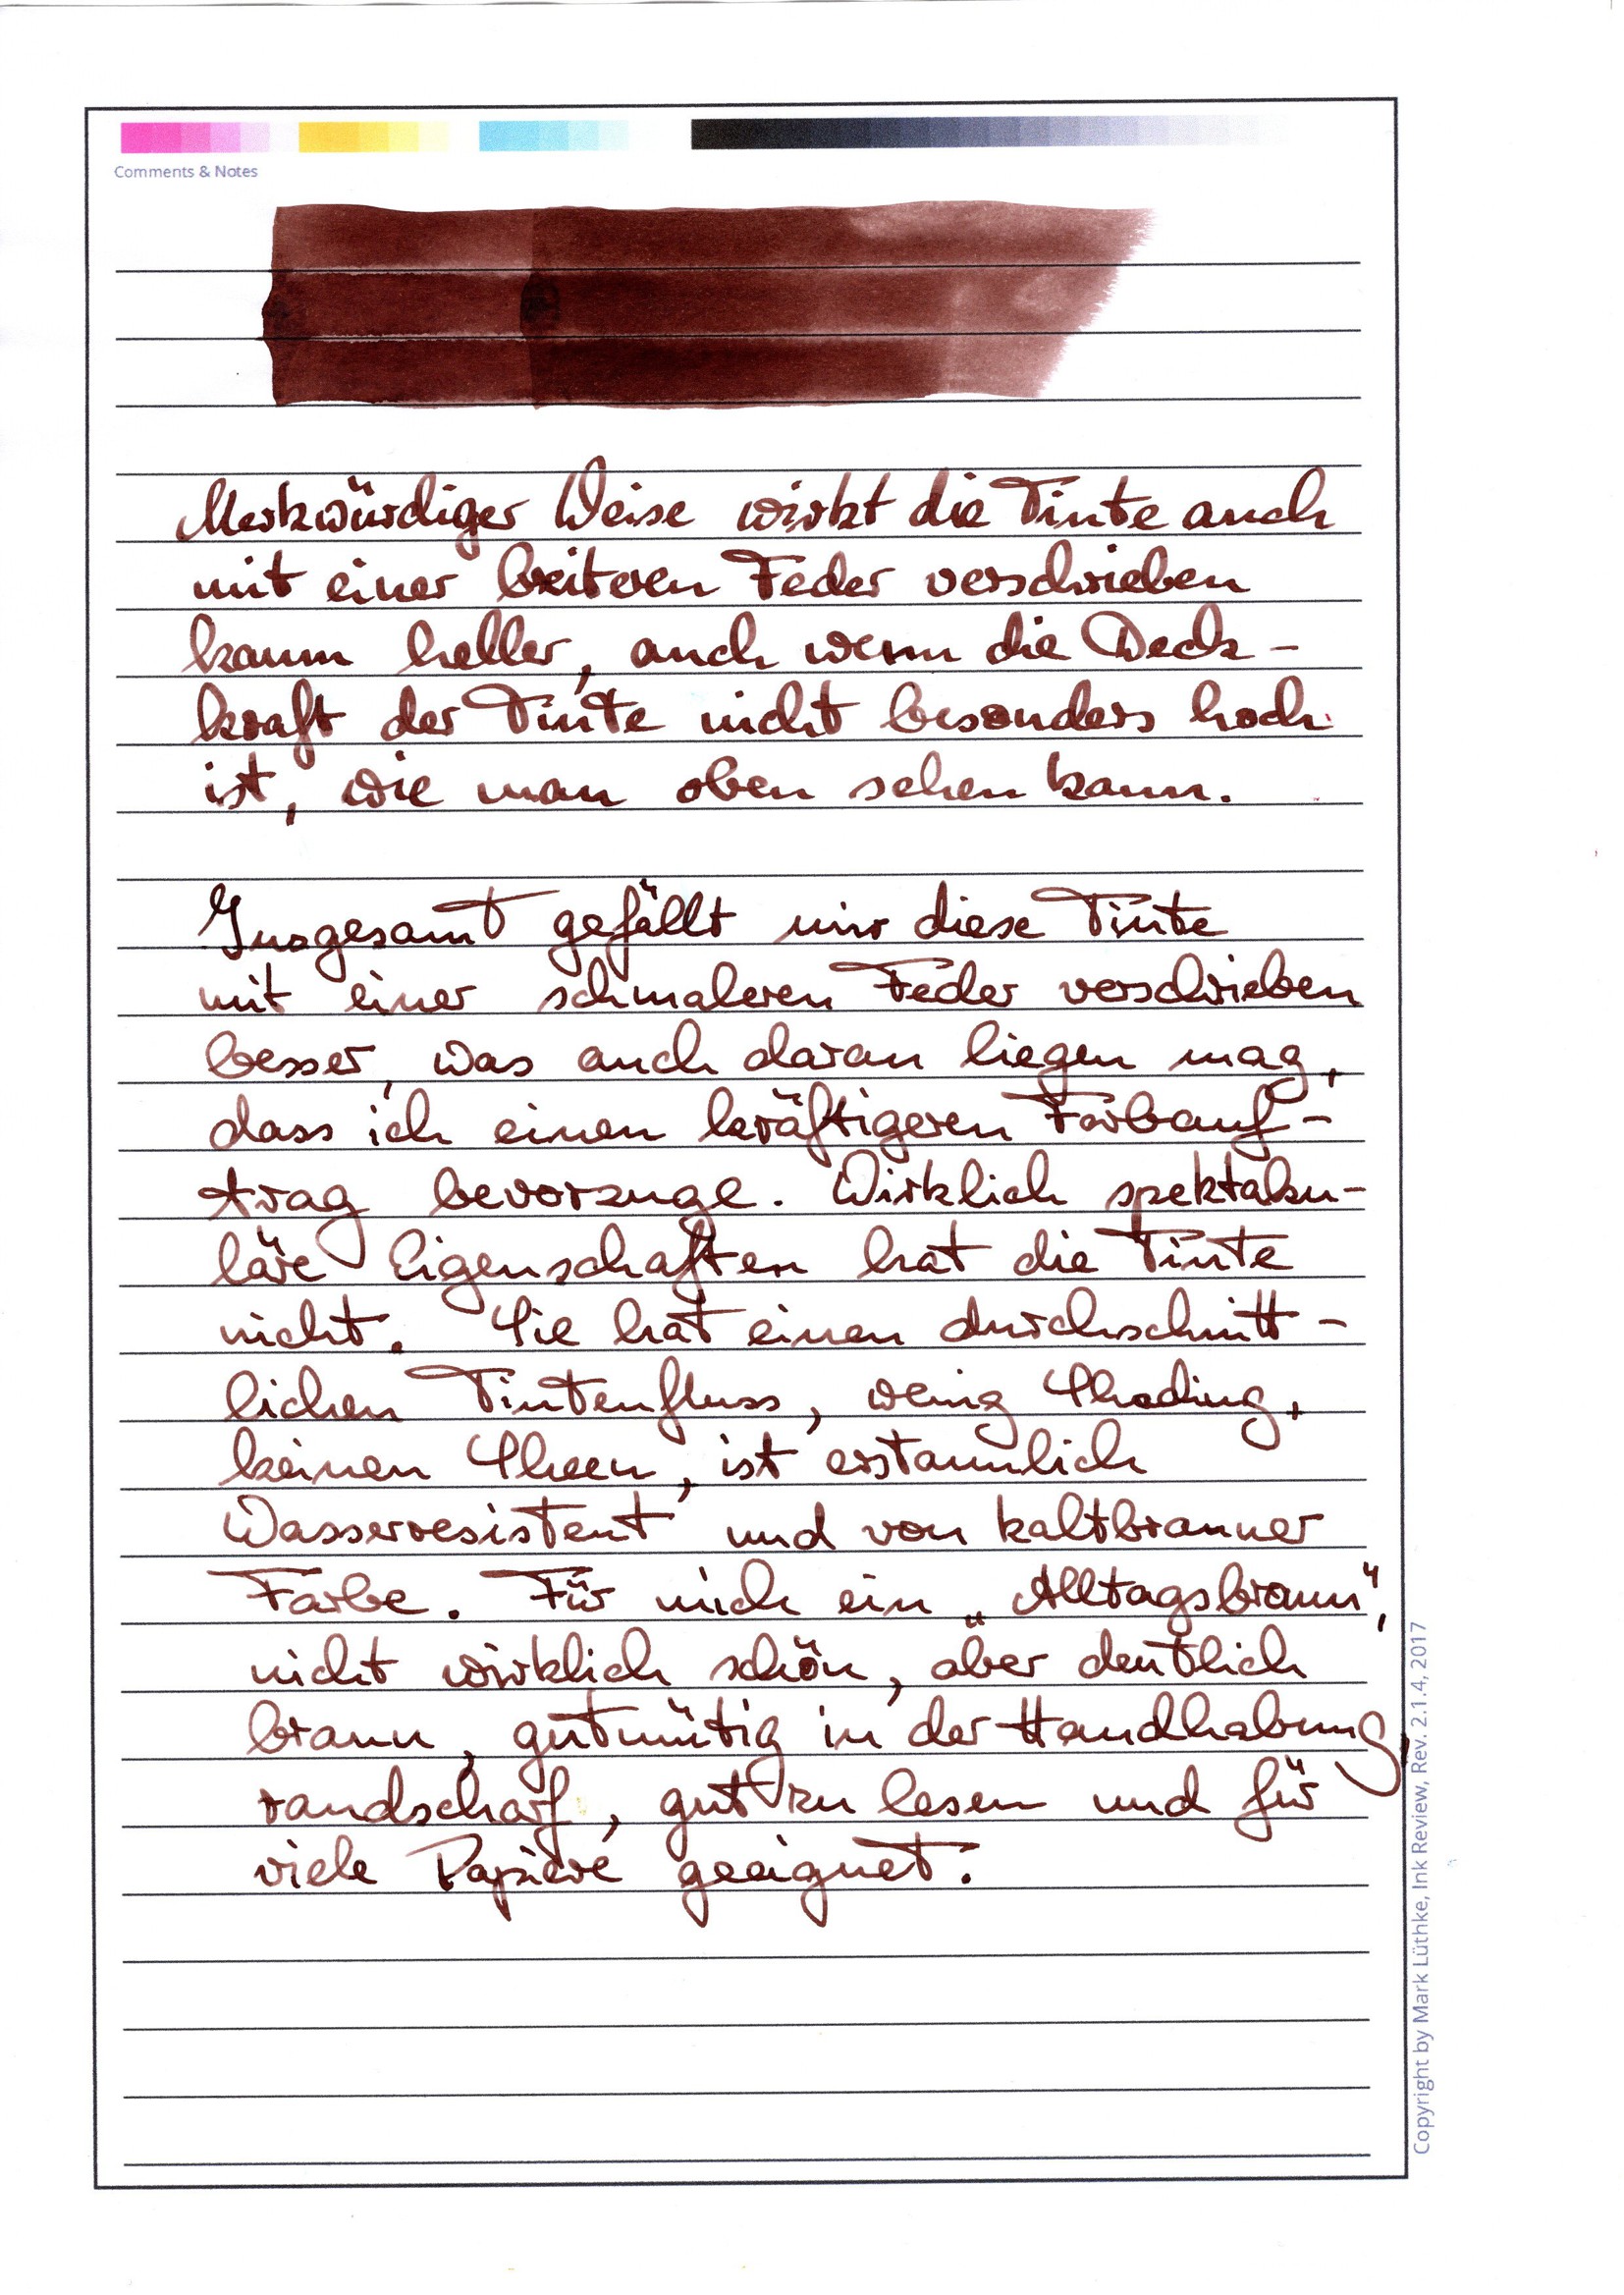 Comments & Notes
Merkwürdiger Weise wirkt die Tinte auch
mit einer breiteren Feder verschrieben
kaum heller, auch wenn die Deck-
kraft der Tinte nicht besonders hoch
ist, wie man oben sehen kann.
Insgesamt gefällt mir diese Tinte
mit einer schmaleren Feder verschrieben
besser, was auch daran liegen mag,
dass ich einen kräftigeren Farbauf-
trag bevorzuge. Wirklich spektaku-
läre Eigenschaften hat die Tinte
nicht. Sie hat einen durchschnitt-
lichen Tintenfluss, wenig Shading,
keinen Sheen, ist erstaunlich
Wasserresistent und von kaltbrauner
Farbe. Für mich ein „Alltagsbraun",
nicht wirklich schön, aber deutlich
braun, gutmütig in der Handhabung,
randscharf, gut zu lesen und für
viele Papiere geeignet.
Copyright by Mark Lüthke, Ink Review, Rev. 2.1.4, 2017